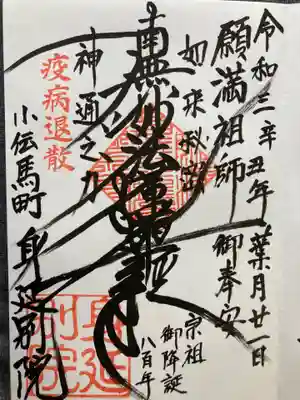 令和三辛丑年葉月廿一日
願満祖師御奉安
宗祖
御降誕
八百年
如来秘密
南無妙法蓮華経
神通之力
疫病退散
小伝馬町 身延別院
身延
別院